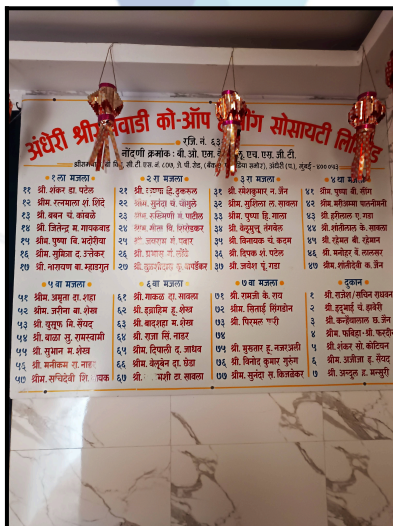 अंधेरी श्री को-ऑप सोसायटी
रजि. नं.
नोंदणी क्रमांक: बी. ओ. एम. एच. एस. जी. टी.
सी. टी. एस. नं. ८०७, जे. पी. रोड, अंधेरी (प.), मुंबई - ४०० ०५३
१ ला मजला
११ श्री. शंकर डा. पटेल
१२ श्रीम. रत्नमाला शं. शिंदे
१३ श्री. बबन चं. कांबळे
१४ श्री. जितेन्द्र म. गायकवाड
१५ श्रीम. पुष्पा बि. भदौरीया
१६ श्रीम. सुमित्रा द. उत्तेकर
१७ श्री. नारायण बा. म्हाडगुत
२ रा मजला
२१ श्री. हि. ठुकरूल
२२ श्रीम. सुनंदा चं. चांगुले
२३ रुक्मिणी गं. पाटील
२४ शिरोडकर
२५ पवार
२६ श्री. प्रभास गं. लोंढे
२७ श्री.
३ रा मजला
३१ श्री. रमेशकुमार न. जैन
३२ श्रीम. सुशिला ल. सावला
३३ श्रीम. पुष्पा हि. गाला
३४ श्री. वेलूमुत्तू तंगवेल
३५ श्री. विनायक चं. कदम
३६ श्री. दिपक शं. पटेल
३७ श्री. जयेश पुं. गडा
४ था मजला
४१ श्रीम. पुष्पा बी. सींग
४२ श्रीम. मरीअम्मा पालनीमनी
४३ श्री. हरीलाल ए. गडा
४४ श्रीम. शांतीलाल के. सावला
४५ श्री. रहेमत बी. रहेमान
४६ श्री. मनोहर वें. लालसर
४७ श्रीम. शांतीदेवी ब. जैन
५ वा मजला
५१ श्रीम. अमृता दा. शहा
५२ श्रीम. जरीना बा. शेख
५३ श्री. युसूफ मि. सैयद
५४ श्री. बाळा सु. रामस्वामी
५५ श्री. सुभान म. शेख
५६ श्री. मनीकम रा. नाडर
५७ श्रीम. सचिदेवी शि.
६ वा मजला
६१ श्रीम. गाकळ दा. सावला
६२ श्री. इब्राहिम हू. शेख
६३ श्री. बादशहा म. शेख
६४ श्री. राजा सिं. नाडर
६५ श्रीम. दिपाली द. जाधव
६६ श्रीम. वेलूबेन दा. छेडा
६७ श्री. मशी टा. सावला
७ वा मजला
७१ श्री. रामजी के. राय
७२ श्रीम. सिताई सिंगडोन
७३ श्री. पिरमल
७५ श्री. मुख्तार हू. नजरअली
७६ श्री. विनोद कुमार गुरुंग
७७ श्रीम. सुनंदा स. किंजळेकर
दुकान
१ श्री. राजेश/सचिन राघवन
२ श्री. इंदूभाई चं. झवेरी
३ श्री. कन्हैयालाल छ. जैन
४ श्रीम. फबिहा/श्री.
५ श्री. शंकर सो. कोटियन
६ श्रीम. अजीजा हू. सैयद
७ श्री. अब्दुल ह. मन्सुरी